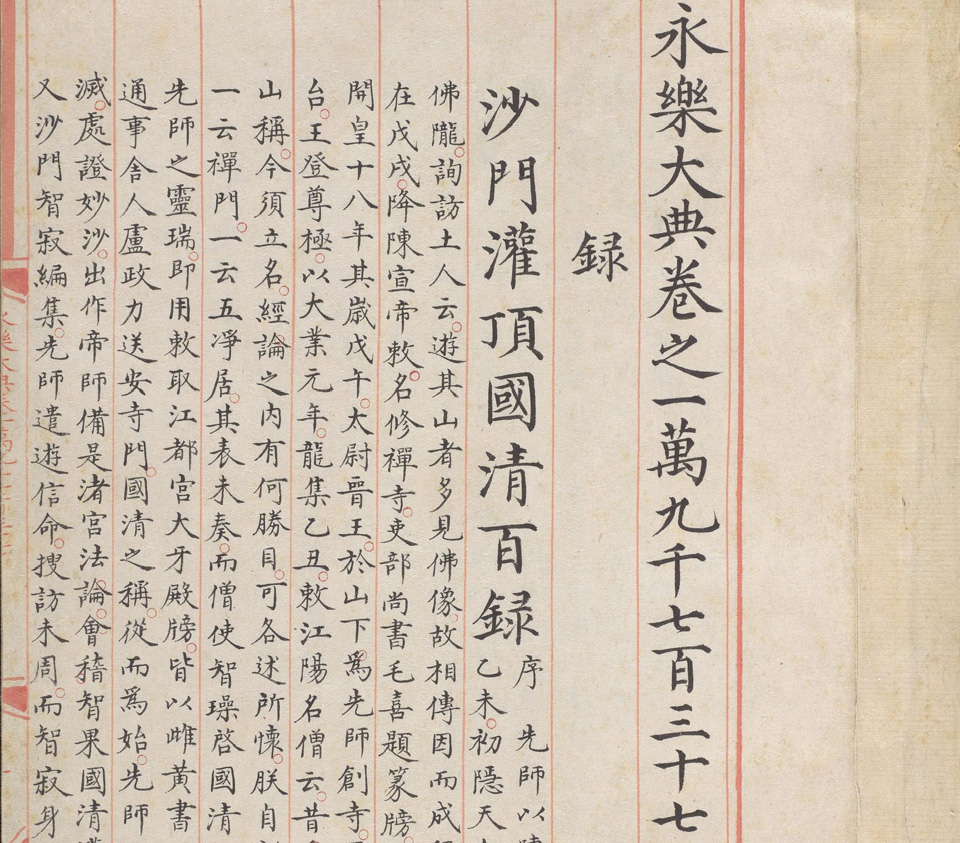 永樂大典卷之一萬九千七百三十七
録
沙門灌頂國清百録
序　先師以陳
乙未。初隱天
佛隴。詢訪土人云。遊其山者多見佛像。故相傳因而成
在戊戌。降陳宣帝敕。名修禪寺。吏部尚書毛喜題篆牓。
開皇十八年其歲戊午。太尉晋王。於山下。爲先師創寺。
台。王登尊極。以大業元年。龍集乙丑。敕江陽名僧云。昔
山稱。今須立名。經論之内有何勝目。可各述所懷。朕自
一云禪門。一云五凈居。其表未奏。而僧使智璪啓國清
先師之靈瑞。即用敕取江都宫大牙殿牓。皆以雌黄書
通事舍人盧政力送安寺門。國清之稱。從而爲始。先師
滅。處證妙沙。出作帝師備是渚宫法論。會稽智果國清
又沙門智寂編集。先師遣遊信命。搜訪未周。而智寂身